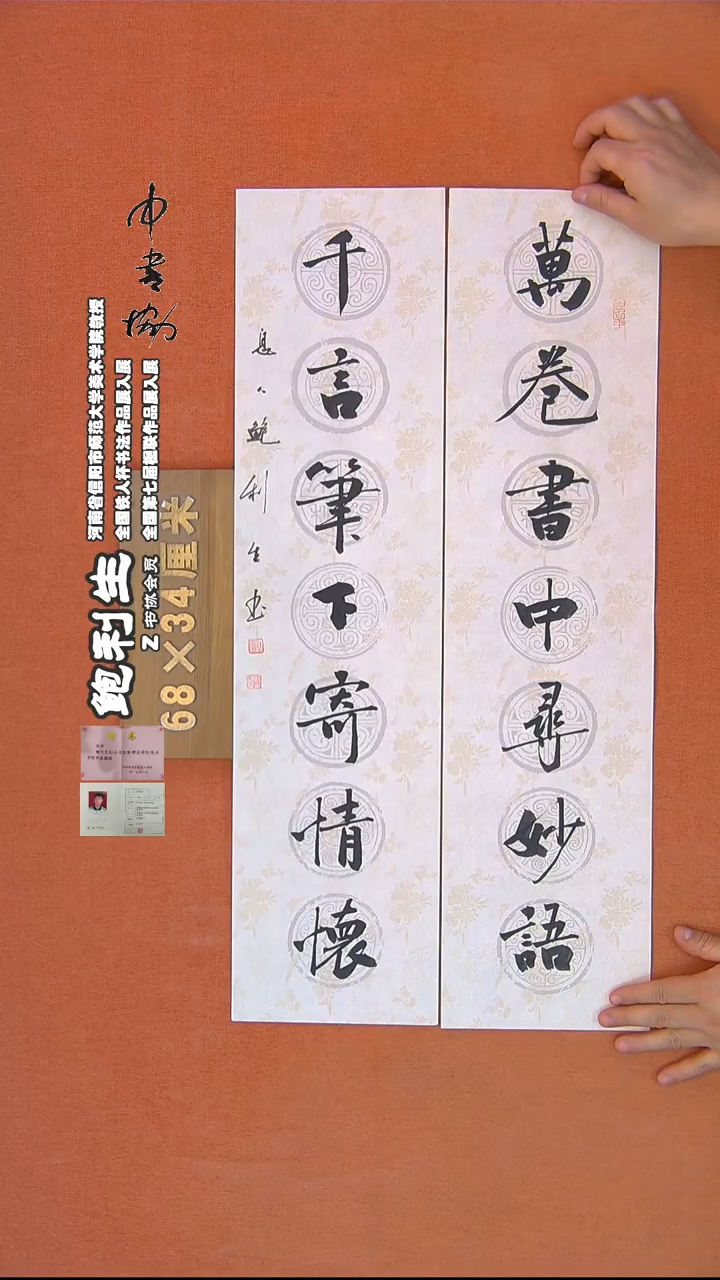 萬卷書中尋妙語
千言筆下寄情懷
鮑利生书
中书协
鲍利生
Z 书协会员
河南省信阳市师范大学美术学院教授
全国铁人杯书法作品展入展
全国第七届楹联作品展入展
68×34厘米